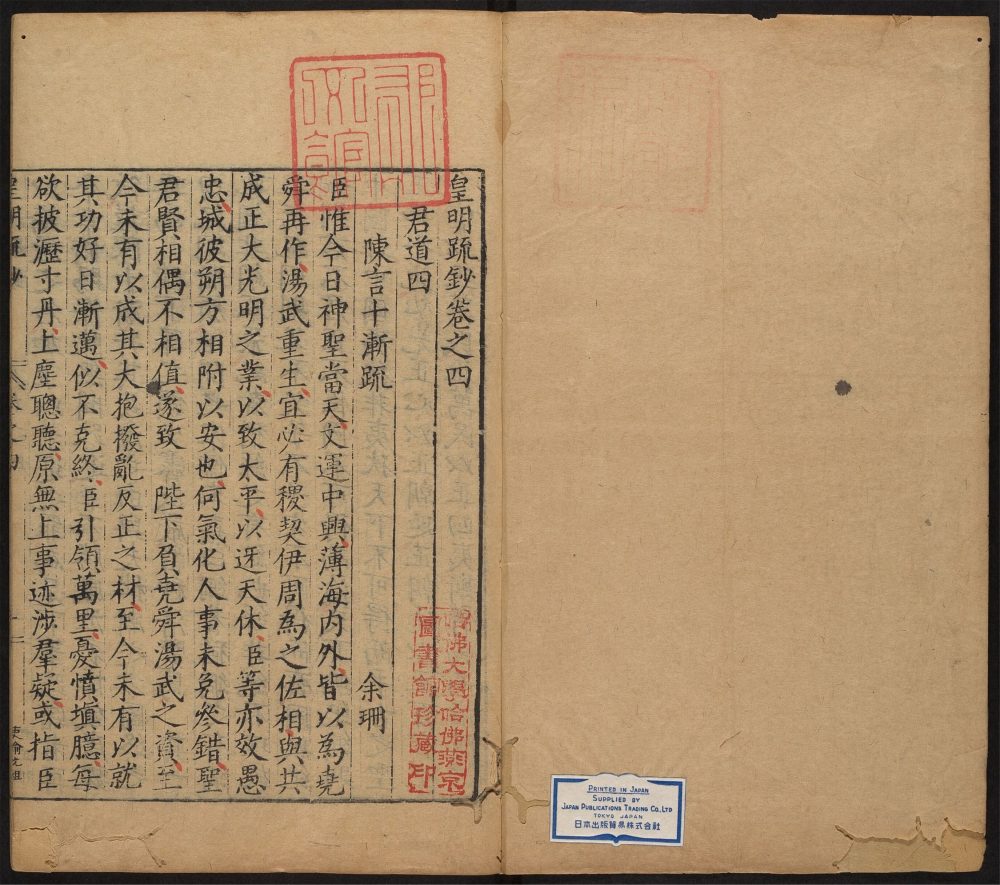 皇明疏鈔卷之四
君道四
陳言十漸疏 余珊
臣惟今日神聖當天文運中興薄海內外皆以為堯
舜再作湯武重生宜必有稷契伊周為之佐相與共
成正大光明之業以致太平以迓天休臣等亦效愚
忠城彼朔方相附以安也何氣化人事未免參錯聖
君賢相偶不相值遂致 陛下負堯舜湯武之資至
今未有以成其大抱撥亂反正之材至今未有以就
其功好日漸邁似不克終臣引領萬里憂憤塡臆每
欲披瀝寸丹上塵聰聽原無上事迹涉羣疑或指臣
皇明疏鈔 卷之四
哈佛大學哈佛燕京
圖書館珍藏印
PRINTED IN JAPAN
SUPPLIED BY
JAPAN PUBLICATIONS TRADING CO., LTD
TOKYO JAPAN
日本出版貿易株式会社